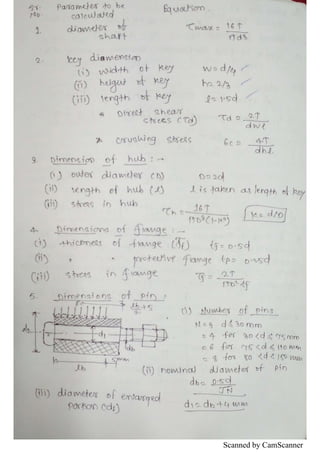 Sr. No. Parameter to be calculated Equation.
1. diameter of shaft τmax = 16T / πd³
2. key dimension
(i) width of key w = d/4
(ii) height of key h = 2/3
(iii) length of key l = 1.5d
* Direct shear stress (τd) τd = 2T / dwl
* crushing stress σc = 4T / dhl
3. Dimension of hub :-
(i) outer diameter (D) D = 2d
(ii) length of hub (l) l is taken as length of key
(iii) stress in hub τh = 16T / πD³(1-k⁴) k = d/D
4. Dimensions of flange :-
(i) thickness of flange (tf) tf = 0.5d
(ii) " " protective flange tp = 0.25d
(iii) stress in flange τf = 2T / πD² tf
5. Dimensions of pin :-
(i) Number of pins
lb+5
N = 3 d ≤ 30 mm
= 4 for 30 < d ≤ 75 mm
= 6 for 75 < d ≤ 110 mm
= 8 for 110 < d ≤ 150 mm
db d1 db
5mm
lb
(ii) nominal diameter of pin
db = 0.5d / √N
(iii) diameter of enlarged portion (d1) d1 = db + 4 mm
Scanned by CamScanner